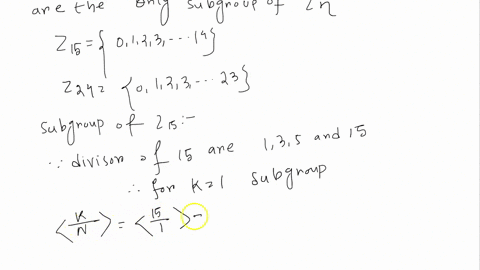 are the only subgroup of Zn
Z15 = { 0,1,2,3, ... 14 }
Z24 = { 0,1,2,3, ... 23 }
subgroup of Z15 :-
∵ divisor of 15 are 1,3,5 and 15
∴ for K=1 subgroup
<K/N> = <15/1> =